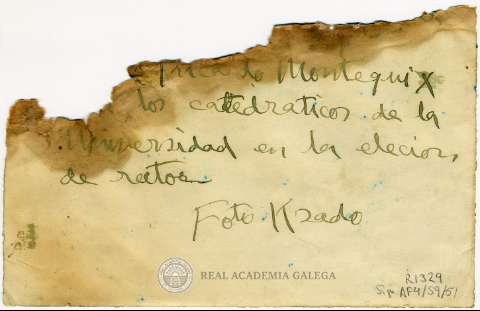 Montequi
los catedraticos de la
Universidad en la elecion
de rector
Foto Ksado
REAL ACADEMIA GALEGA
R1329
Sig. AF4/S9/51